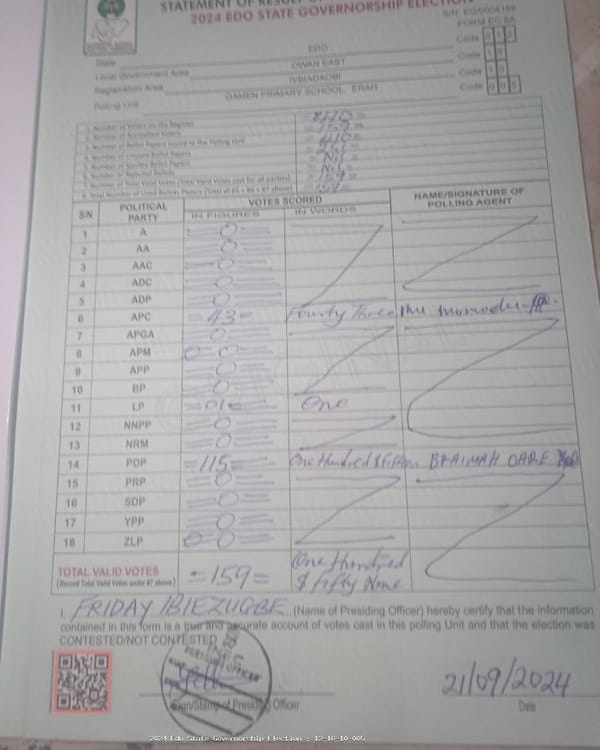 STATEMENT OF RESULT
2024 EDO STATE GOVERNORSHIP ELECTION
FORM EC 8A
State EDO Code 012
Local Government Area OWAN EAST Code 16
Registration Area IVBIADAOBI Code 10
Polling Unit OAMEN PRIMARY SCHOOL, ERAH Code 005
1. Number of Voters on the Register
2. Number of Accredited Voters 159
3. Number of Ballot Papers Issued to the Polling Unit
4. Number of Unused Ballot Papers
5. Number of Spoiled Ballot Papers Nil
6. Number of Rejected Ballots Nil
7. Number of Total Valid Votes (Total Valid Votes cast for all parties) 159
8. Total Number of Used Ballot Papers (Total of #5 + #6 + #7 above) 159
S/N POLITICAL PARTY VOTES SCORED NAME/SIGNATURE OF POLLING AGENT
IN FIGURES IN WORDS
1 A 0
2 AA 0
3 AAC 0
4 ADC 0
5 ADP 0
6 APC =43= Fourty Three
7 APGA 0
8 APM 0 0
9 APP 0
10 BP 0
11 LP 01 One
12 NNPP 0
13 NRM 0
14 PDP =115= One Hundred & fifteen BRAIMAH DARE
15 PRP 0
16 SDP 0
17 YPP 0
18 ZLP 0 0
TOTAL VALID VOTES =159= One Hundred
(Record Total Valid Votes under #7 above) & fifty Nine
I, FRIDAY IBIEZUGBE (Name of Presiding Officer) hereby certify that the information
contained in this form is a true and accurate account of votes cast in this polling Unit and that the election was
CONTESTED/NOT CONTESTED
PRESIDING OFFICER
21/09/2024
Sign/Stamp of Presiding Officer Date
2024 Edo State Governorship Election : 12-16-10-005